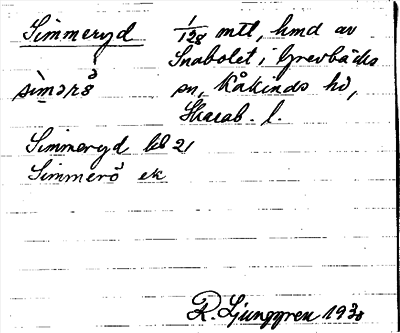 Simmeryd 1/128 mtl, hmd av
Snabolet i Grevbäcks
sìmərö̀ sn, Kåkinds hd,
Skarab. l.
Simmeryd kb 21
Simmerö ek
R. Ljunggren 1930